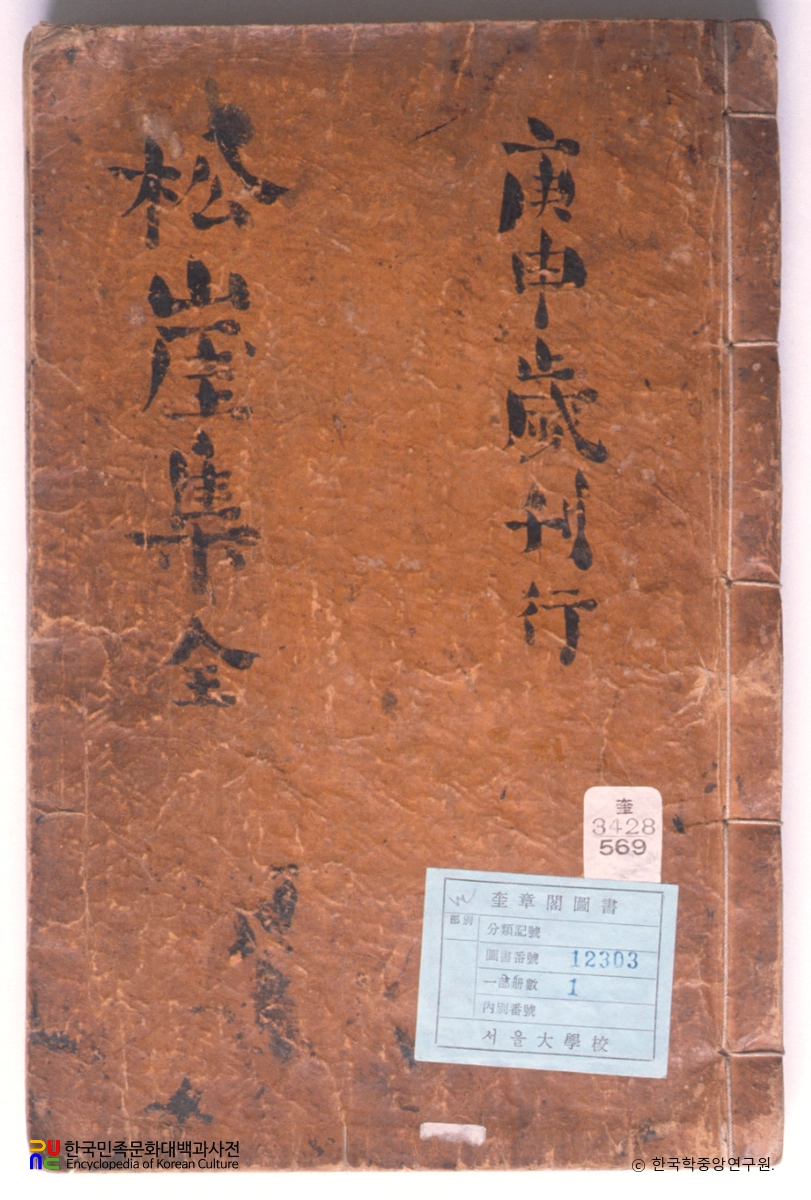 庚申歲刊行
松崖集全
奎
3428
569
奎章閣圖書
部別
分類記號
圖書番號 12303
一部冊數 1
內別番號
서울大學校
한국민족문화대백과사전
Encyclopedia of Korean Culture
© 한국학중앙연구원.